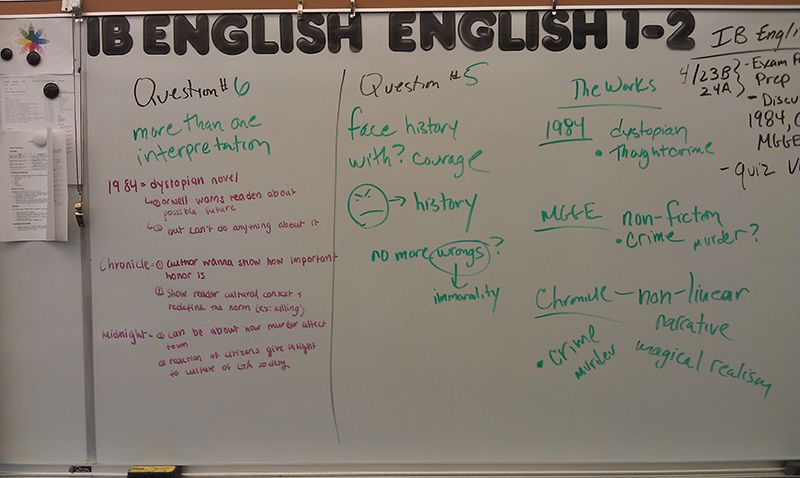 IB ENGLISH ENGLISH 1-2
Question #6
more than one
interpretation
1984 = dystopian novel
① orwell warns readers about
possible future
② but can't do anything about it
Chronicle = ① author wanna show how important
honor is
② show reader cultural context +
redefine the norm (ex: killing)
Midnight = ① can be about how murder affect
town
② reaction of citizens give insight
to culture of society
Question #5
face history
with? courage
→ history
no more wrongs?
↓
immorality
The Works
1984 dystopian
• Thoughtcrime
MGGE non-ficton
• Crime murder?
Chronicle — non-linear
narrative
magical realism
• Crime
murder
IB Engli
4/23B
24A
- Exam P
Prep
- Discu
1984, C
MGGE
- Quiz V